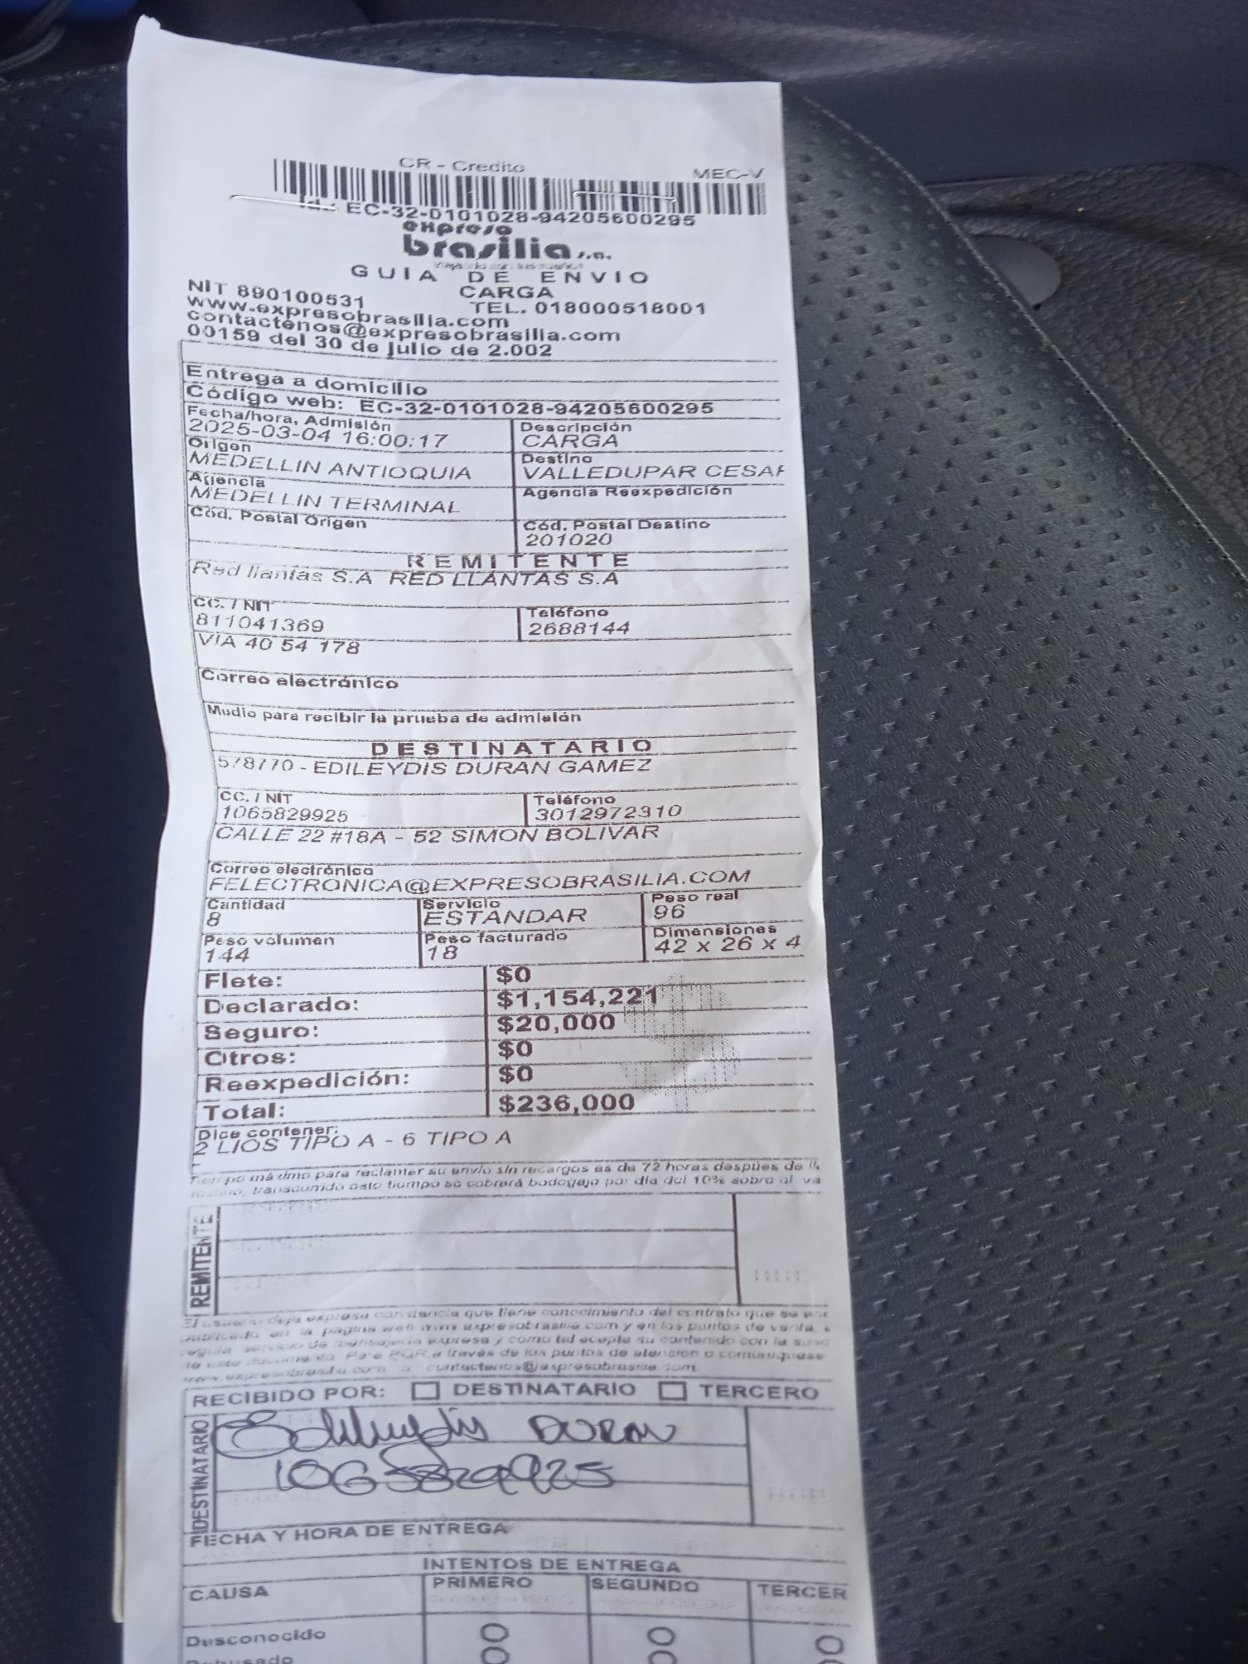 CR - Credito
MEC-V
Id.: EC-32-0101028-94205600295
expreso
brasilia s.a.
GUIA DE ENVIO
CARGA
NIT 890100531
TEL. 018000518001
www.expresobrasilia.com
contactenos@expresobrasilia.com
00159 del 30 de julio de 2.002
Entrega a domicilio
Código web: EC-32-0101028-94205600295
Fecha/hora, Admisión
Descripción
2025-03-04 16:00:17
CARGA
Origen
Destino
MEDELLIN ANTIOQUIA
VALLEDUPAR CESAR
Agencia
Agencia Reexpedición
MEDELLIN TERMINAL
Cód. Postal Origen
Cód. Postal Destino
201020
REMITENTE
Red llantas S.A RED LLANTAS S.A
CC. / NIT
Teléfono
811041369
2688144
VIA 40 54 178
Correo electrónico
Medio para recibir la prueba de admisión
DESTINATARIO
578770 - EDILEYDIS DURAN GAMEZ
CC. / NIT
Teléfono
1065829925
3012972310
CALLE 22 #18A - 52 SIMON BOLIVAR
Correo electrónico
FELECTRONICA@EXPRESOBRASILIA.COM
Cantidad
Servicio
Peso real
8
ESTANDAR
96
Peso volumen
Peso facturado
Dimensiones
144
18
42 x 26 x 4
Flete: $0
Declarado: $1,154,221
Seguro: $20,000
Otros: $0
Reexpedición: $0
Total: $236,000
Dice contener:
2 LIOS TIPO A - 6 TIPO A
Tiempo máximo para reclamar su envío sin recargos es de 72 horas después de
transcurrido este tiempo se cobrará bodegaje por día del 10% sobre al va
REMITENTE
El usuario deja expresa constancia que tiene conocimiento del contrato que se
publicado en la página web www.expresobrasilia.com y en los puntos de venta,
servicio de mensajería expresa y como tal acepta su contenido con la
documento. Para PQR a través de los puntos de atención o comuníquese
www.expresobrasilia.com o contactenos@expresobrasilia.com
RECIBIDO POR: DESTINATARIO TERCERO
DESTINATARIO
Edileydis DURAN
1065829925
FECHA Y HORA DE ENTREGA
INTENTOS DE ENTREGA
CAUSA PRIMERO SEGUNDO TERCER
Desconocido
Rehusado